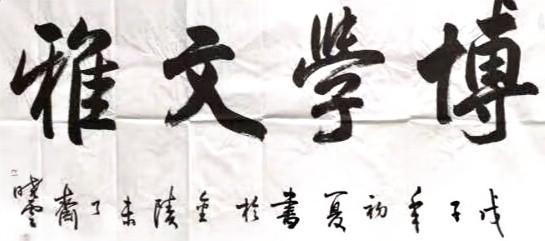 博學文雅
戊子年初夏書於金陵未了齋
曉雲